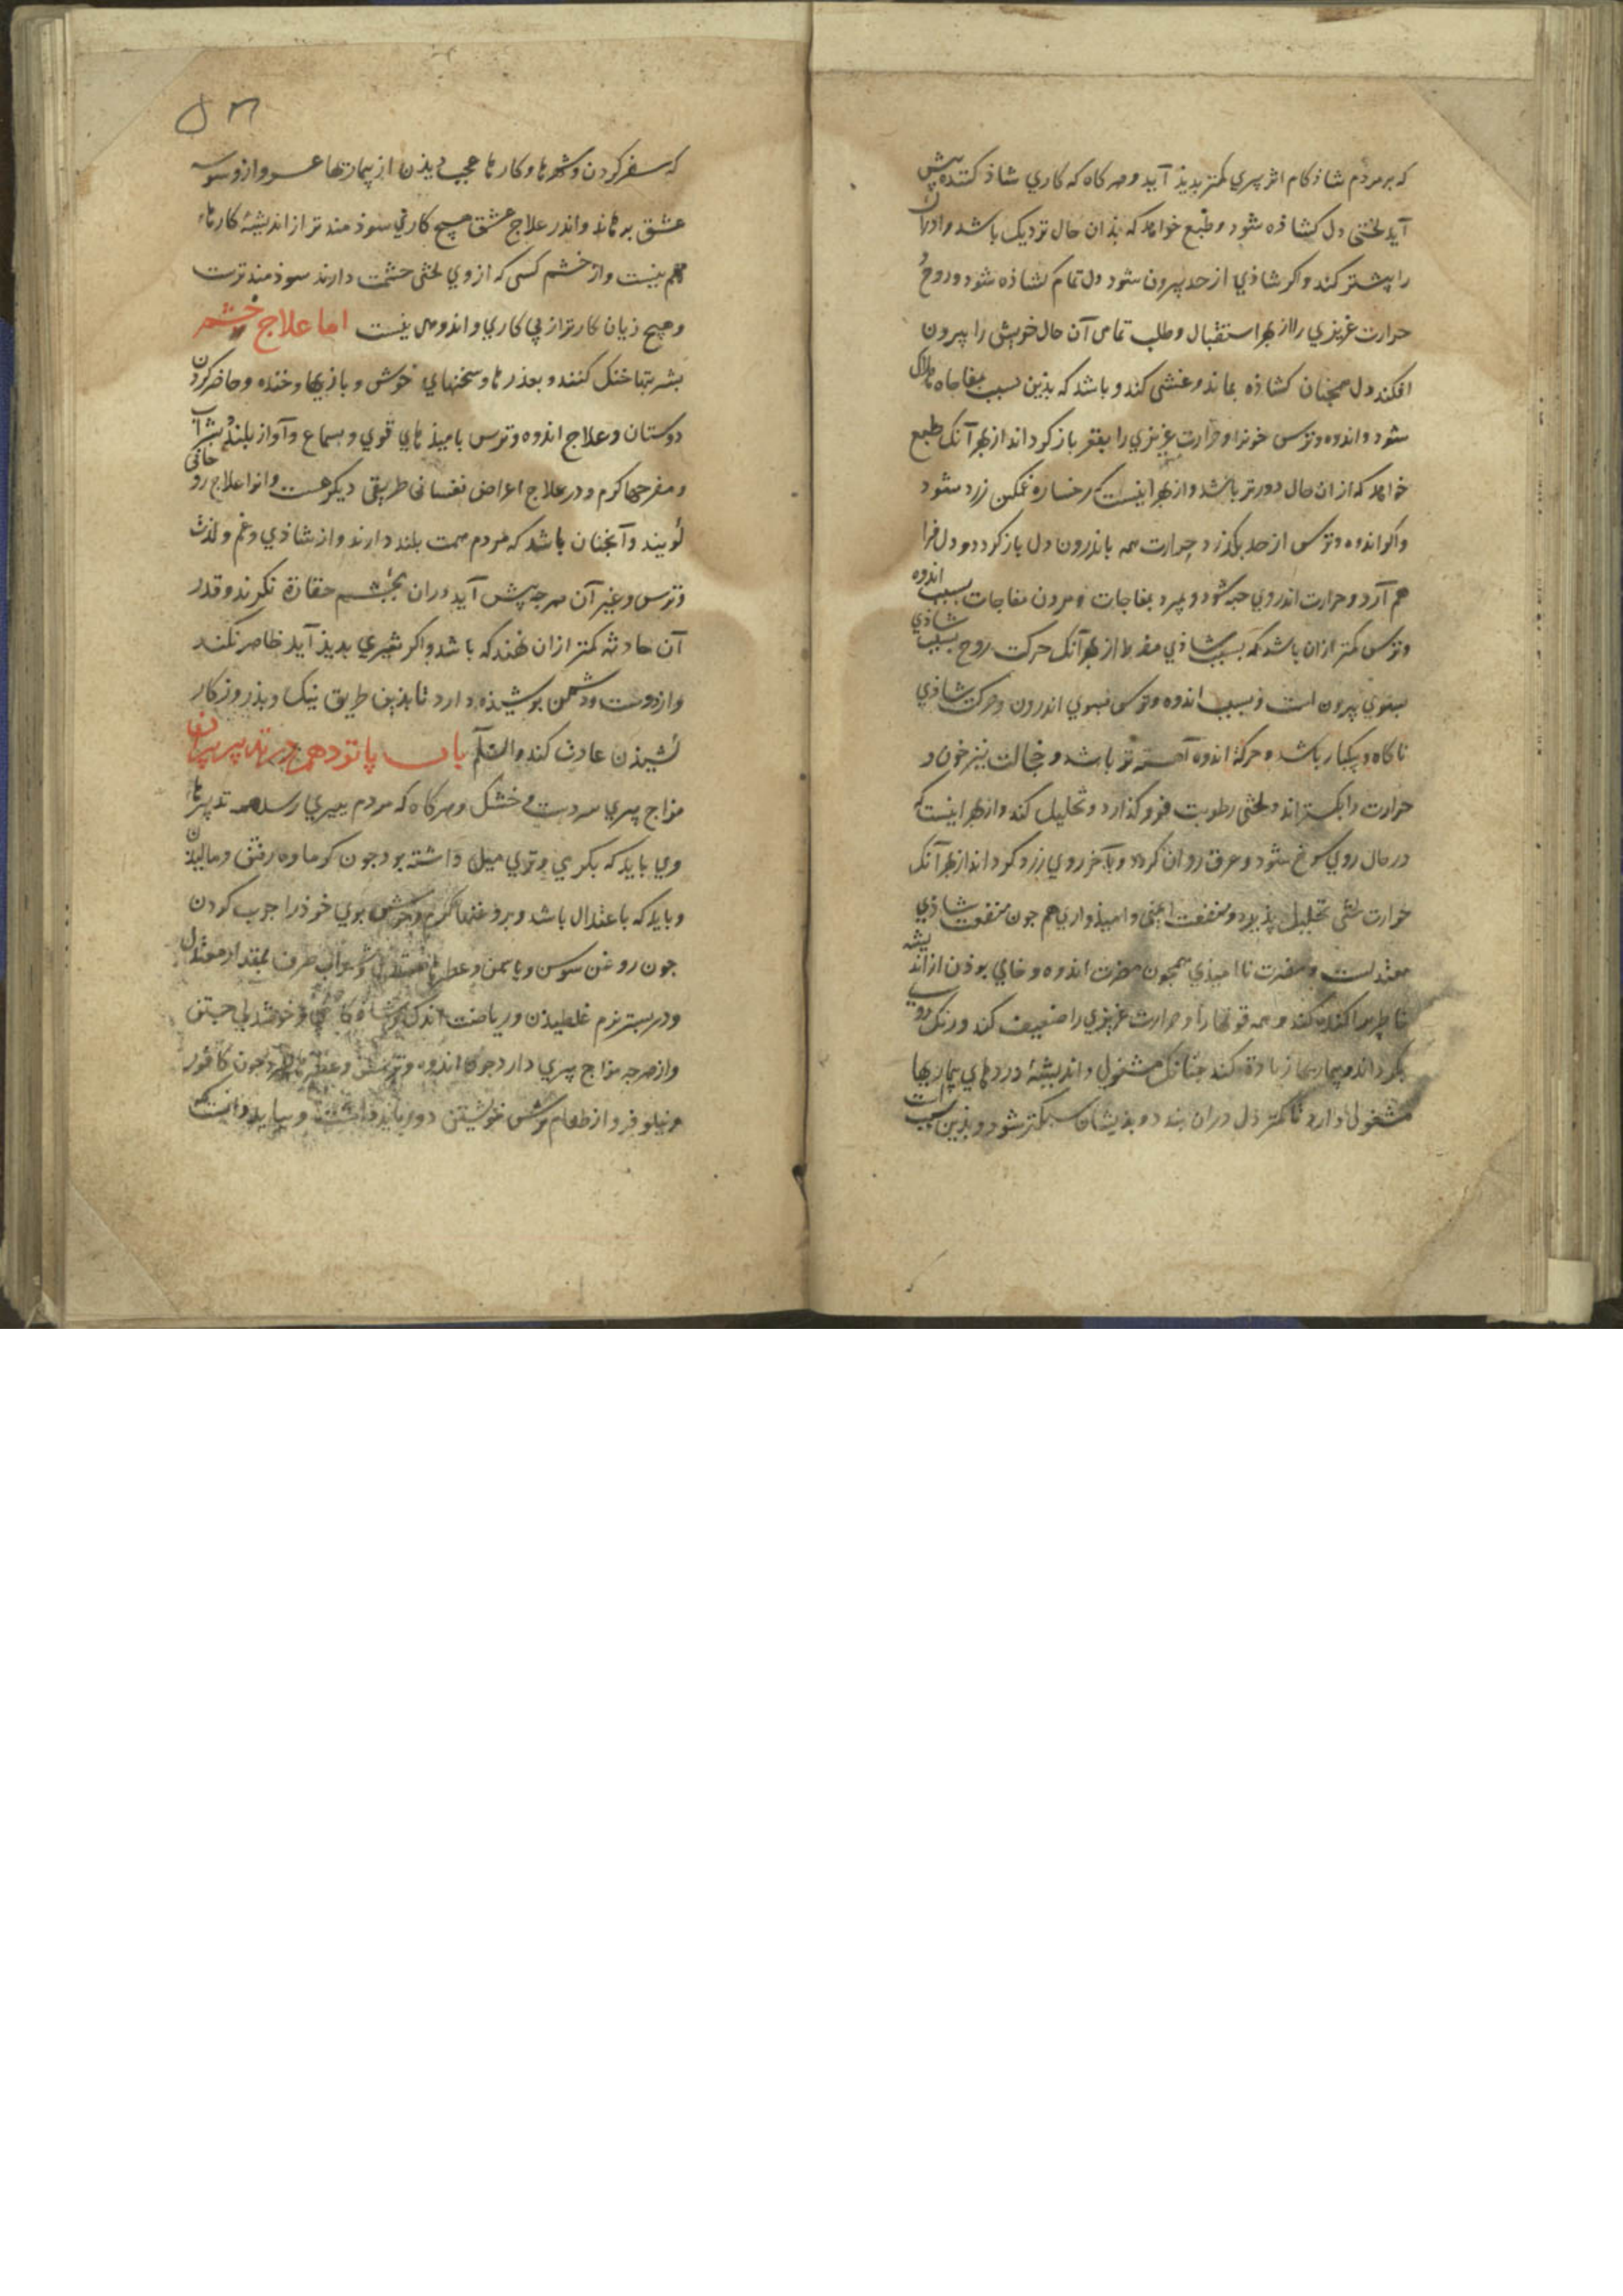 که بر مردم شاذکام اثر پیري کمتر پدیذ آید و هرکاه که کاري شاذ کننده پیش
آید لختی دل کشاذه شود و طبع خواهد که بذان حال نزدیک باشد و اورا آن
را پیشتر کند و اکر شاذي از حد بیرون شود دل تمام کشاذه شود و روح و
حرارت غریزي را از بهر استقبال و طلب تمامی آن حال خویش را بیرون
افکند دل همجنان کشاذه بماند و غشی کند و باشد که بذین سبب بمفاجاه هلاک
شود و اندوه و ترس خونرا و حرارت غریزي را بقعر باز کرداند از بهر آنک طبع
خواهد که از ان حال دورتر باشد و از بهر اینست که رخساره غمکین زرد شود
و اکر اندوه و ترس از حد بکذرد حرارت همه باندرون دل باز کردد و دل فرا
هم آرد و حرارت اندر وي خبه شود و بمیرد بمفاجات و مردن مفاجات بسبب اندوه
و ترس کمتر از ان باشد که بسبب شاذي مفرط از بهر آنک حرکت روح بسبب شاذي
بسوي بیرون است و بسبب اندوه و ترس بسوي اندرون و حرکت شاذي
ناکاه و بیکبار باشد و حرکة اندوه آهسته تر باشد و خجالت نیز خون و
حرارت را بکستراند و لختی رطوبت فرو کذارد و تحلیل کند و از بهر اینست که
در حال روي سرخ شود و عرق روان کردد و بآخر روي زرد کرداند از بهر آنک
حرارت لختی تحلیل پذیرد و منفعت ایمنی و امیذواري هم جون منفعت شاذي
معتدلست و مضرت ناامیذي همجون مضرت اندوه و خالي بوذن از اندیشه
خاطر پراکنده کند و همه قوتها را و حرارت غریزي را ضعیف کند و رنک روي
بکرداند و بیماریها زیادة کند جنانک مشغولي و اندیشۀ دردهاي بیماریها
مشغولی دارد تا کمتر دل دران بندد و بذیشان سبکتر شود و بذین سبب است
که سفر کردن و شهرها و کارها عجب دیذن از بیماریها عسر و از وسوسه
عشق برهاند و اندر علاج عشق هیچ کاري سوذمندتر از اندیشۀ کارهاء
مهم نیست و از خشم کسی که از وي لختی حشمت دارند سوذمندترست
و هیچ زیان کارتر از بي کاري و اندوهی نیست اما علاج خشم
بشربتها خنک کنند و بعذرها و سخنهاي خوش و بازیها و خنده و حاضر کردن
دوستان و علاج اندوه و ترس بامیذهاي قوي و بسماع و آواز بلند و شراب
و مفرحها کرم و در علاج اعراض نفسانی طریقی دیکر هست و انرا علاج روحانی
کویند و آنجنان باشد که مردم همت بلند دارند و از شاذي و غم و لذت
و ترس و غیر آن هرجه پیش آید دران بجشم حقارة نکرند و قدر
آن حادثه کمتر ازان نهند که باشد و اکر تغییري پدیذ آید ظاهر نکند
و از دوست و دشمن پوشیذه دارد تا بذین طریق نیک و بذ روزکار
کشیذن عادت کند والسّلم باب پانزدهم در تدبیر پیران
مزاج پیري سردست و خشک و هرکاه که مردم بپیري رسد همه تدبیرهاء
وي باید که بکرمي و تري میل داشته بود جون کرماوه رفتن و مالیذن
و باید که باعتدال باشد و بروغنهاء کرم و خوش بوي خوذ را جرب کردن
جون روغن سوسن و یاسمن و عطرها معتدل و شراب صرف بمقدار معتدل
و در بستر نرم غلطیذن و ریاضت اندک و شاذکامي و خوشدلي جستن
و از هرجه مزاج پیري دارد جون اندوه و ترس و عطرهاء سرد جون کافور
و نیلوفر و از طعام ترش خویشتن دور باید داشت و بباید دانست که